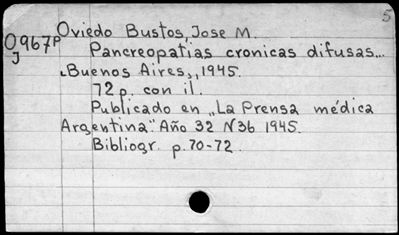 5
Oviedo Bustos, Jose M.
O967P
J
Pancreopatias cronicas difusas...
Buenos Aires, 1945.
72 p. con il.
Publicado en „La Prensa médica
Argentina". Año 32 N36 1945.
Bibliogr. p. 70-72.